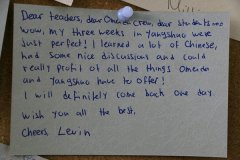 Dear teachers, dear Omeida Crew, dear students and
wow, my three weeks in Yangshuo were
just perfect! I learned a lot of Chinese,
had some nice discussions and could
really profit of all the things Omeida
and Yangshuo have to offer!
I will definitely come back one day.
Wish you all the best,
Cheers, Levin